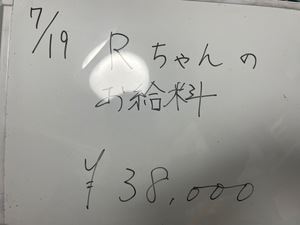 7/19 Rちゃんの
お給料
¥38,000